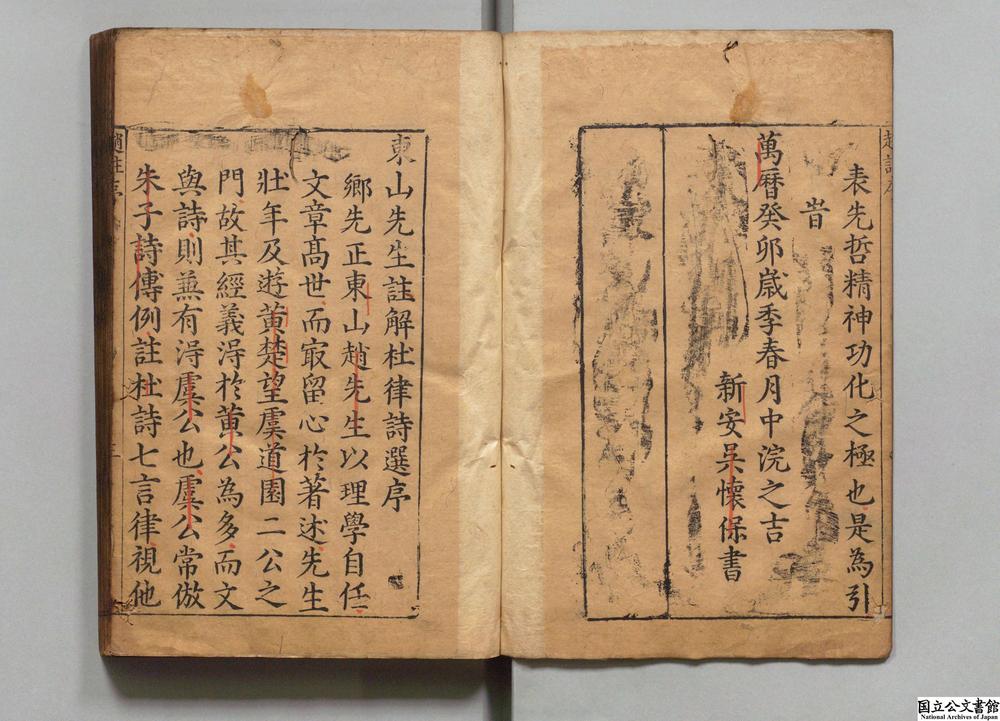 表先哲精神功化之極也是為引
旹
萬曆癸卯嵗季春月中浣之吉
新安吳懷保書
東山先生註解杜律詩選序
鄉先正東山趙先生以理學自任
文章髙世而㝡留心於著述先生
壯年及逰黃楚望虞道園二公之
門故其經義淂於黃公為多而文
與詩則兼有淂虞公也虞公常倣
朱子詩傳例註杜詩七言律視他
国立公文書館
National Archives of Japan